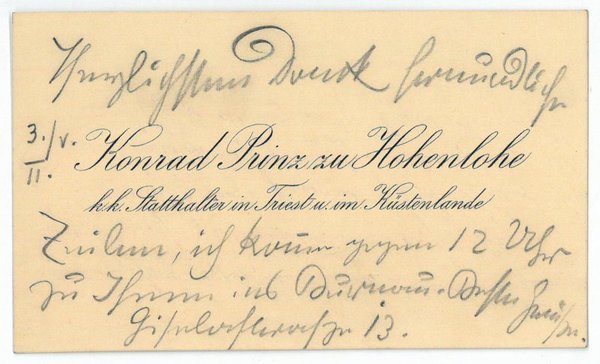 Herzlichsten Dank freundliche
3./V.
II.
Konrad Prinz zu Hohenlohe
k.k. Statthalter in Triest u. im Küstenlande
Zeilen, ich komme gegen 12 Uhr
zu Ihnen ins Bureau. Beste Grüße
Giselastrasse 13.